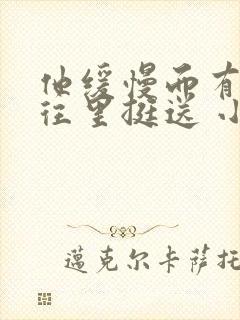 他缓慢而有
往里挺送 小
邁克尔卡萨托